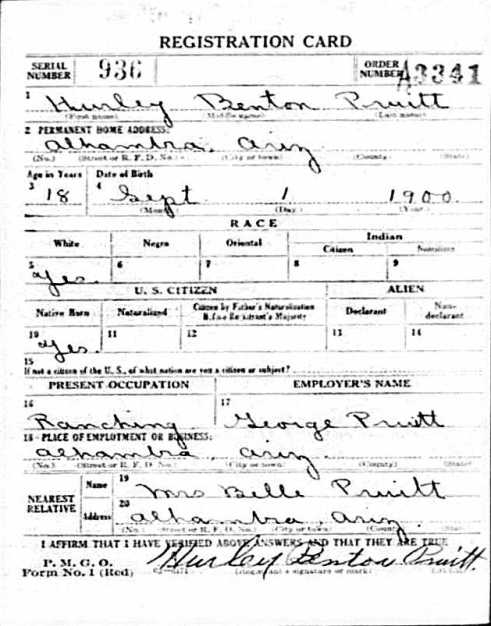 REGISTRATION CARD
SERIAL NUMBER 936 ORDER NUMBER A3341
1 Hurley Benton Pruitt
(First name) (Middle name) (Last name)
2 PERMANENT HOME ADDRESS:
Alhambra, Ariz
(No.) (Street or R. F. D. No.) (City or town) (County) (State)
Age in Years Date of Birth
3 18 4 Sept 1 1900
(Month) (Day) (Year)
RACE
White Negro Oriental Indian
Citizen Noncitizen
5 Yes. 6 7 8 9
U. S. CITIZEN ALIEN
Native Born Naturalized Citizen by Father's Naturalization Before Registrant's Majority Declarant Non-declarant
10 Yes. 11 12 13 14
15
If not a citizen of the U. S., of what nation are you a citizen or subject?
PRESENT OCCUPATION EMPLOYER'S NAME
16 Ranching 17 George Pruitt
18 - PLACE OF EMPLOYMENT OR BUSINESS:
Alhambra, Ariz
(No.) (Street or R. F. D. No.) (City or town) (County) (State)
NEAREST RELATIVE
Name 19 Mrs Belle Pruitt
Address 20 Alhambra, Ariz.
(No.) (Street or R. F. D. No.) (City or town) (County) (State)
I AFFIRM THAT I HAVE VERIFIED ABOVE ANSWERS AND THAT THEY ARE TRUE
P. M. G. O.
Form No. 1 (Red) Hurley Benton Pruitt.
(Registrant's signature or mark)